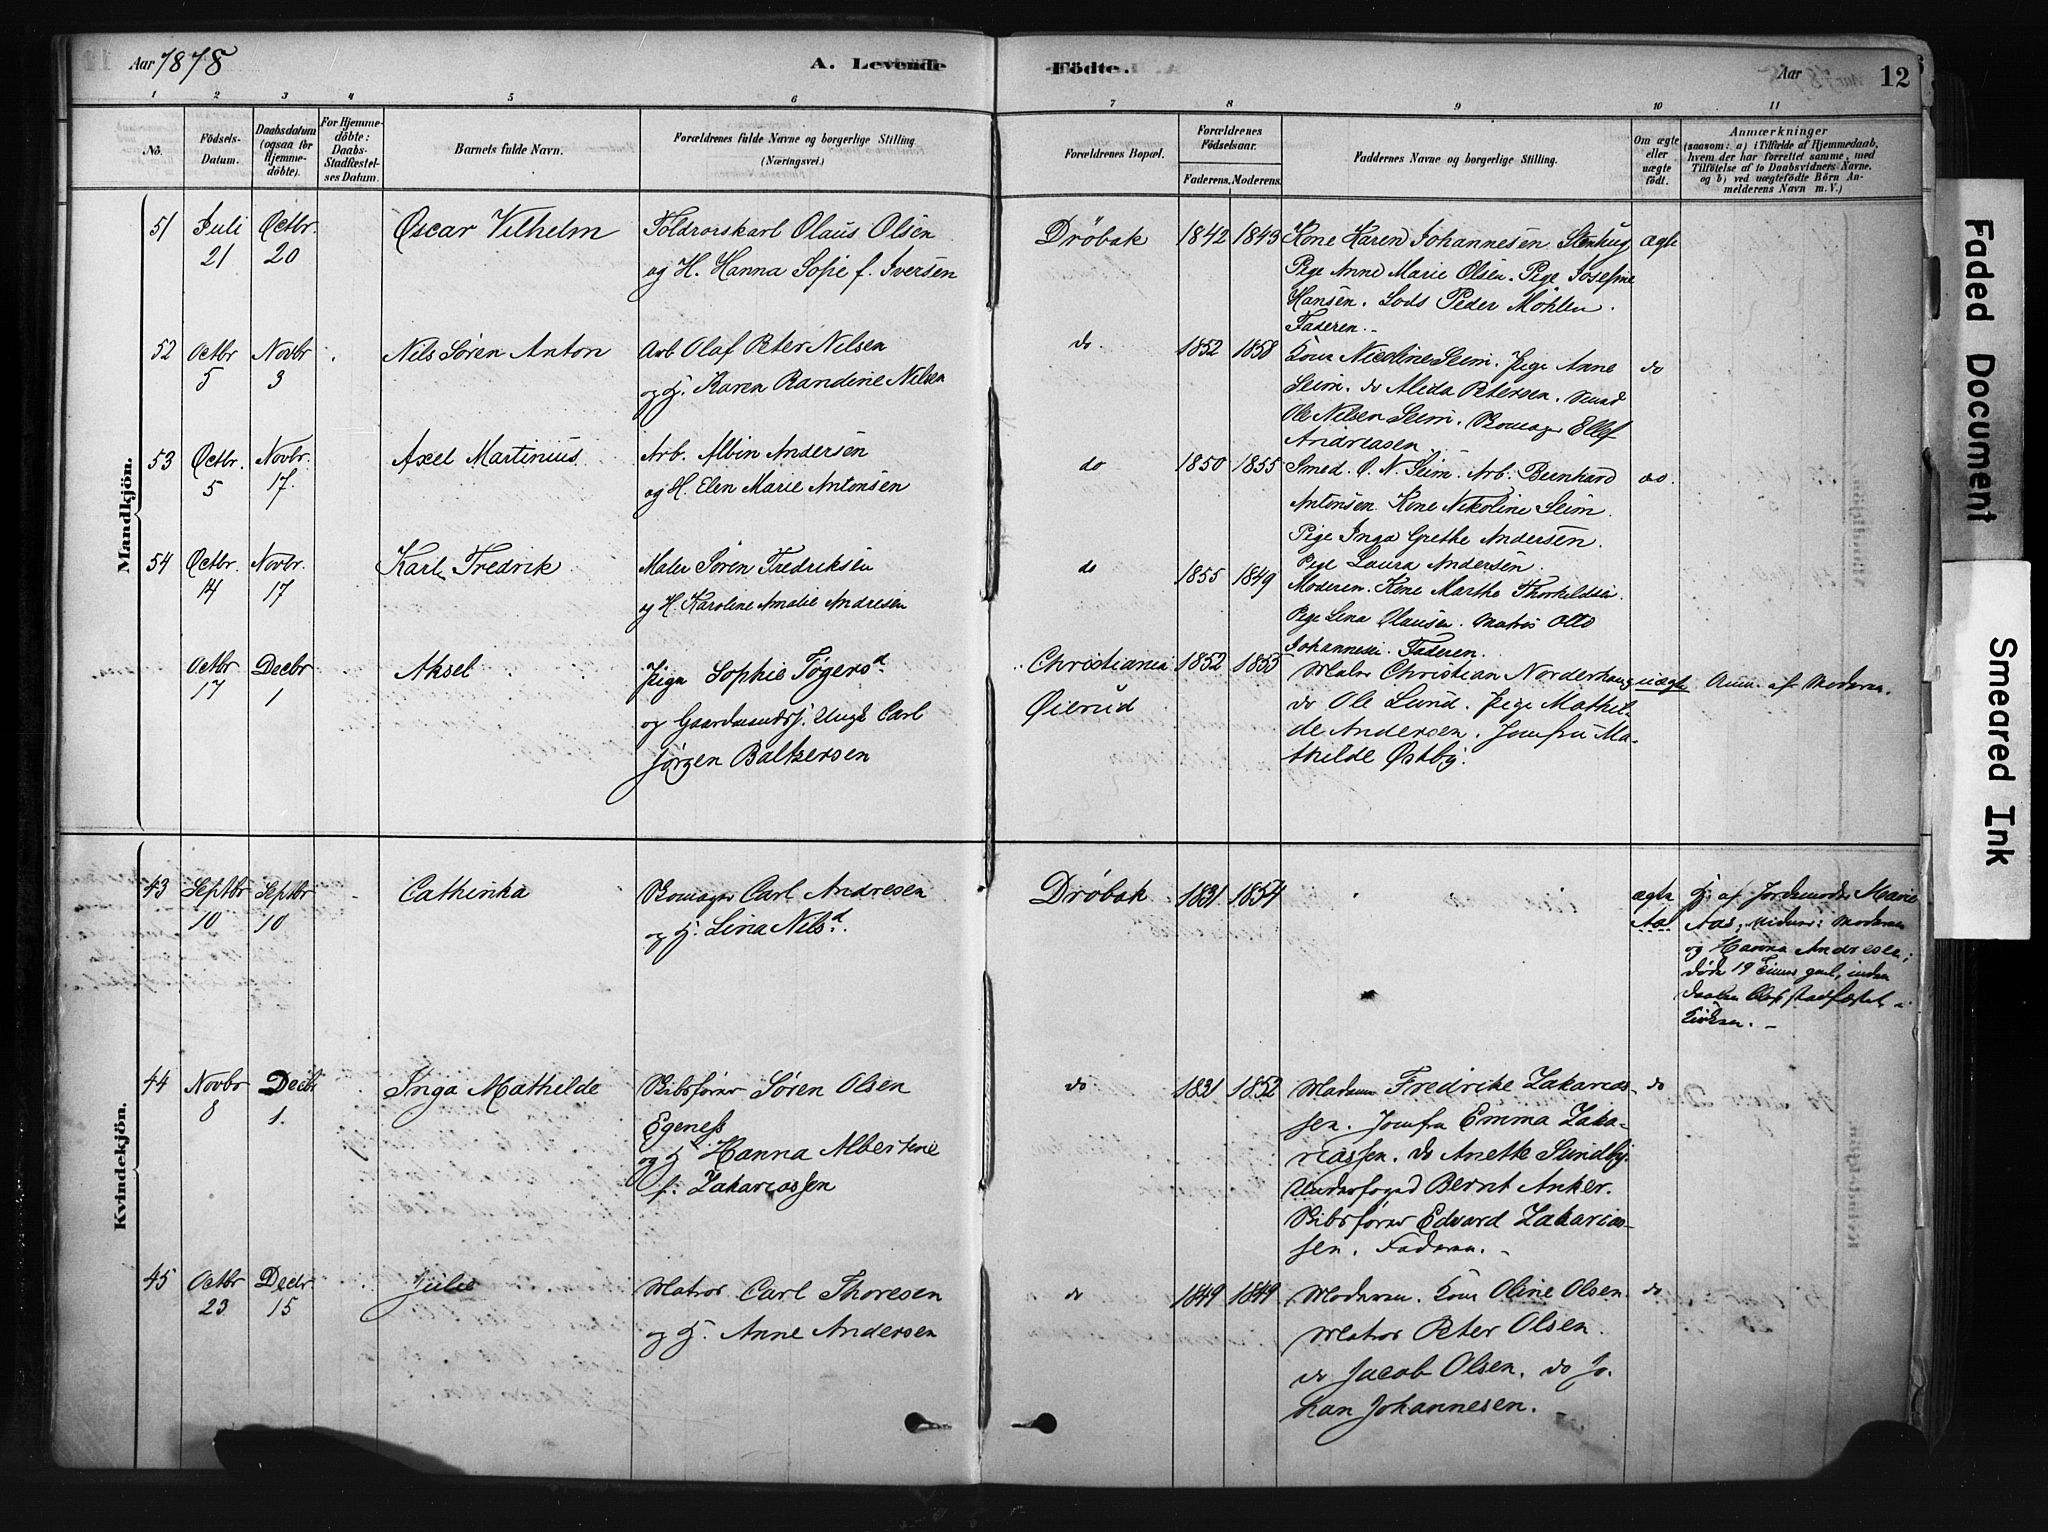 Aar 1878
A. Levende Födte.
Aar
12
1 2 3 4 5 6 7 8 9 10 11
No.
Födsels-
Datum.
Daabsdatum
(ogsaa for
Hjemme-
döbte).
For Hjemme-
döbte:
Daabs-
Stadfæstel-
ses Datum.
Barnets fulde Navn.
Forældrenes fulde Navne og borgerlige Stilling
(Næringsvei.)
Forældrenes Bopæl.
Forældrenes
Födselsaar.
Faderens. Moderens.
Faddernes Navne og borgerlige Stilling.
Om ægte
eller
uægte
födt.
Anmærkninger
(saasom: a) i Tilfælde af Hjemmedaab,
hvem der har forrettet samme, med
Tilföielse af to Daabsvidners Navne,
og b) ved uægtefödte Börn An-
melderens Navn m. V.)
Mandkjön.
51 Juli Octbr. Oscar Vilhelm Foldrorskarl Olaus Olsen Dröbak 1842 1843 Kone Karen Johannesen Stenhug ægte
21 20 og H. Hanna Sofie f. Iversen Pige Anne Marie Olsen. Pige Josefine
Hansen. Lods Peder Möhlen.
Faderen.
52 Octbr Novbr Nils Sören Anton Arb Olaf Peter Nilsen do. 1852 1858 Kone Nicoline Seim. Pige Anne do
5 3 og H. Karen Randine Nilsen Seim. do Alida Petersen. Smed
Ole Nilsen Seim. Ellef
Andreasen
53 Octbr. Novbr. Axel Martinius Arb. Albin Andersen do 1850 1855 Smed. O. N. Seim. Arb. Bernhard do.
5 17. og H. Elen Marie Antonsen Antonsen. Kone Nikoline Seim.
Pige Inga Grethe Andersen.
Pige Laura Andersen.
54 Octbr. Novbr. Karl Fredrik Maler Sören Fredriksen do 1855 1849 Moderen. Kone Marthe Thorkildsen.
14 17 og H. Karoline Amalie Andresen Pige Lina Olausen. Matros Otto
Johannesen. Faderen.
Octbr Decbr Aksel Pige Sophie Tögersd Christiania 1852 1855 Matros Christian Norderhaug uægte Anm. af Moderen.
17 1 og Gaardmandss. Ungk Carl Öierud do Ole Lund. Pige Mathil-
Jörgen Baltzersen de Andersen. Jomfru Ma-
thilde Östby.
Kvindekjön.
43 Septbr Septbr Cathinka Carl Andresen Dröbak 1831 1854 ægte H. af Jordemoder Marie
10 10 og H. Lina Nilsd. Aas; Moderen
og Hanna Andresen;
döde 19 Timer gml, inden
Daaben blev stadfæstet i
Kirken.
44 Novbr Decbr Inga Mathilde Skibsförer Sören Olsen do 1831 1852 Madam Fredrike Zakarias- do
8 1. Egeness sen. Jomfru Emma Zaka-
og H Hanna Albertine riassen. do Anette Sundby.
f. Zakariassen Underfoged Bernt Anker.
Skibsförer Edvard Zakarias-
sen. Faderen.
45 Octbr Decbr. Julie Matros Carl Thoresen do 1849 1849 Moderen. Kone Oline Olsen. do
23 15 og H. Anne Andersen Matros Peter Olsen.
do Jacob Olsen. do Jo-
han Johannesen.
Faded Document
Smeared Ink